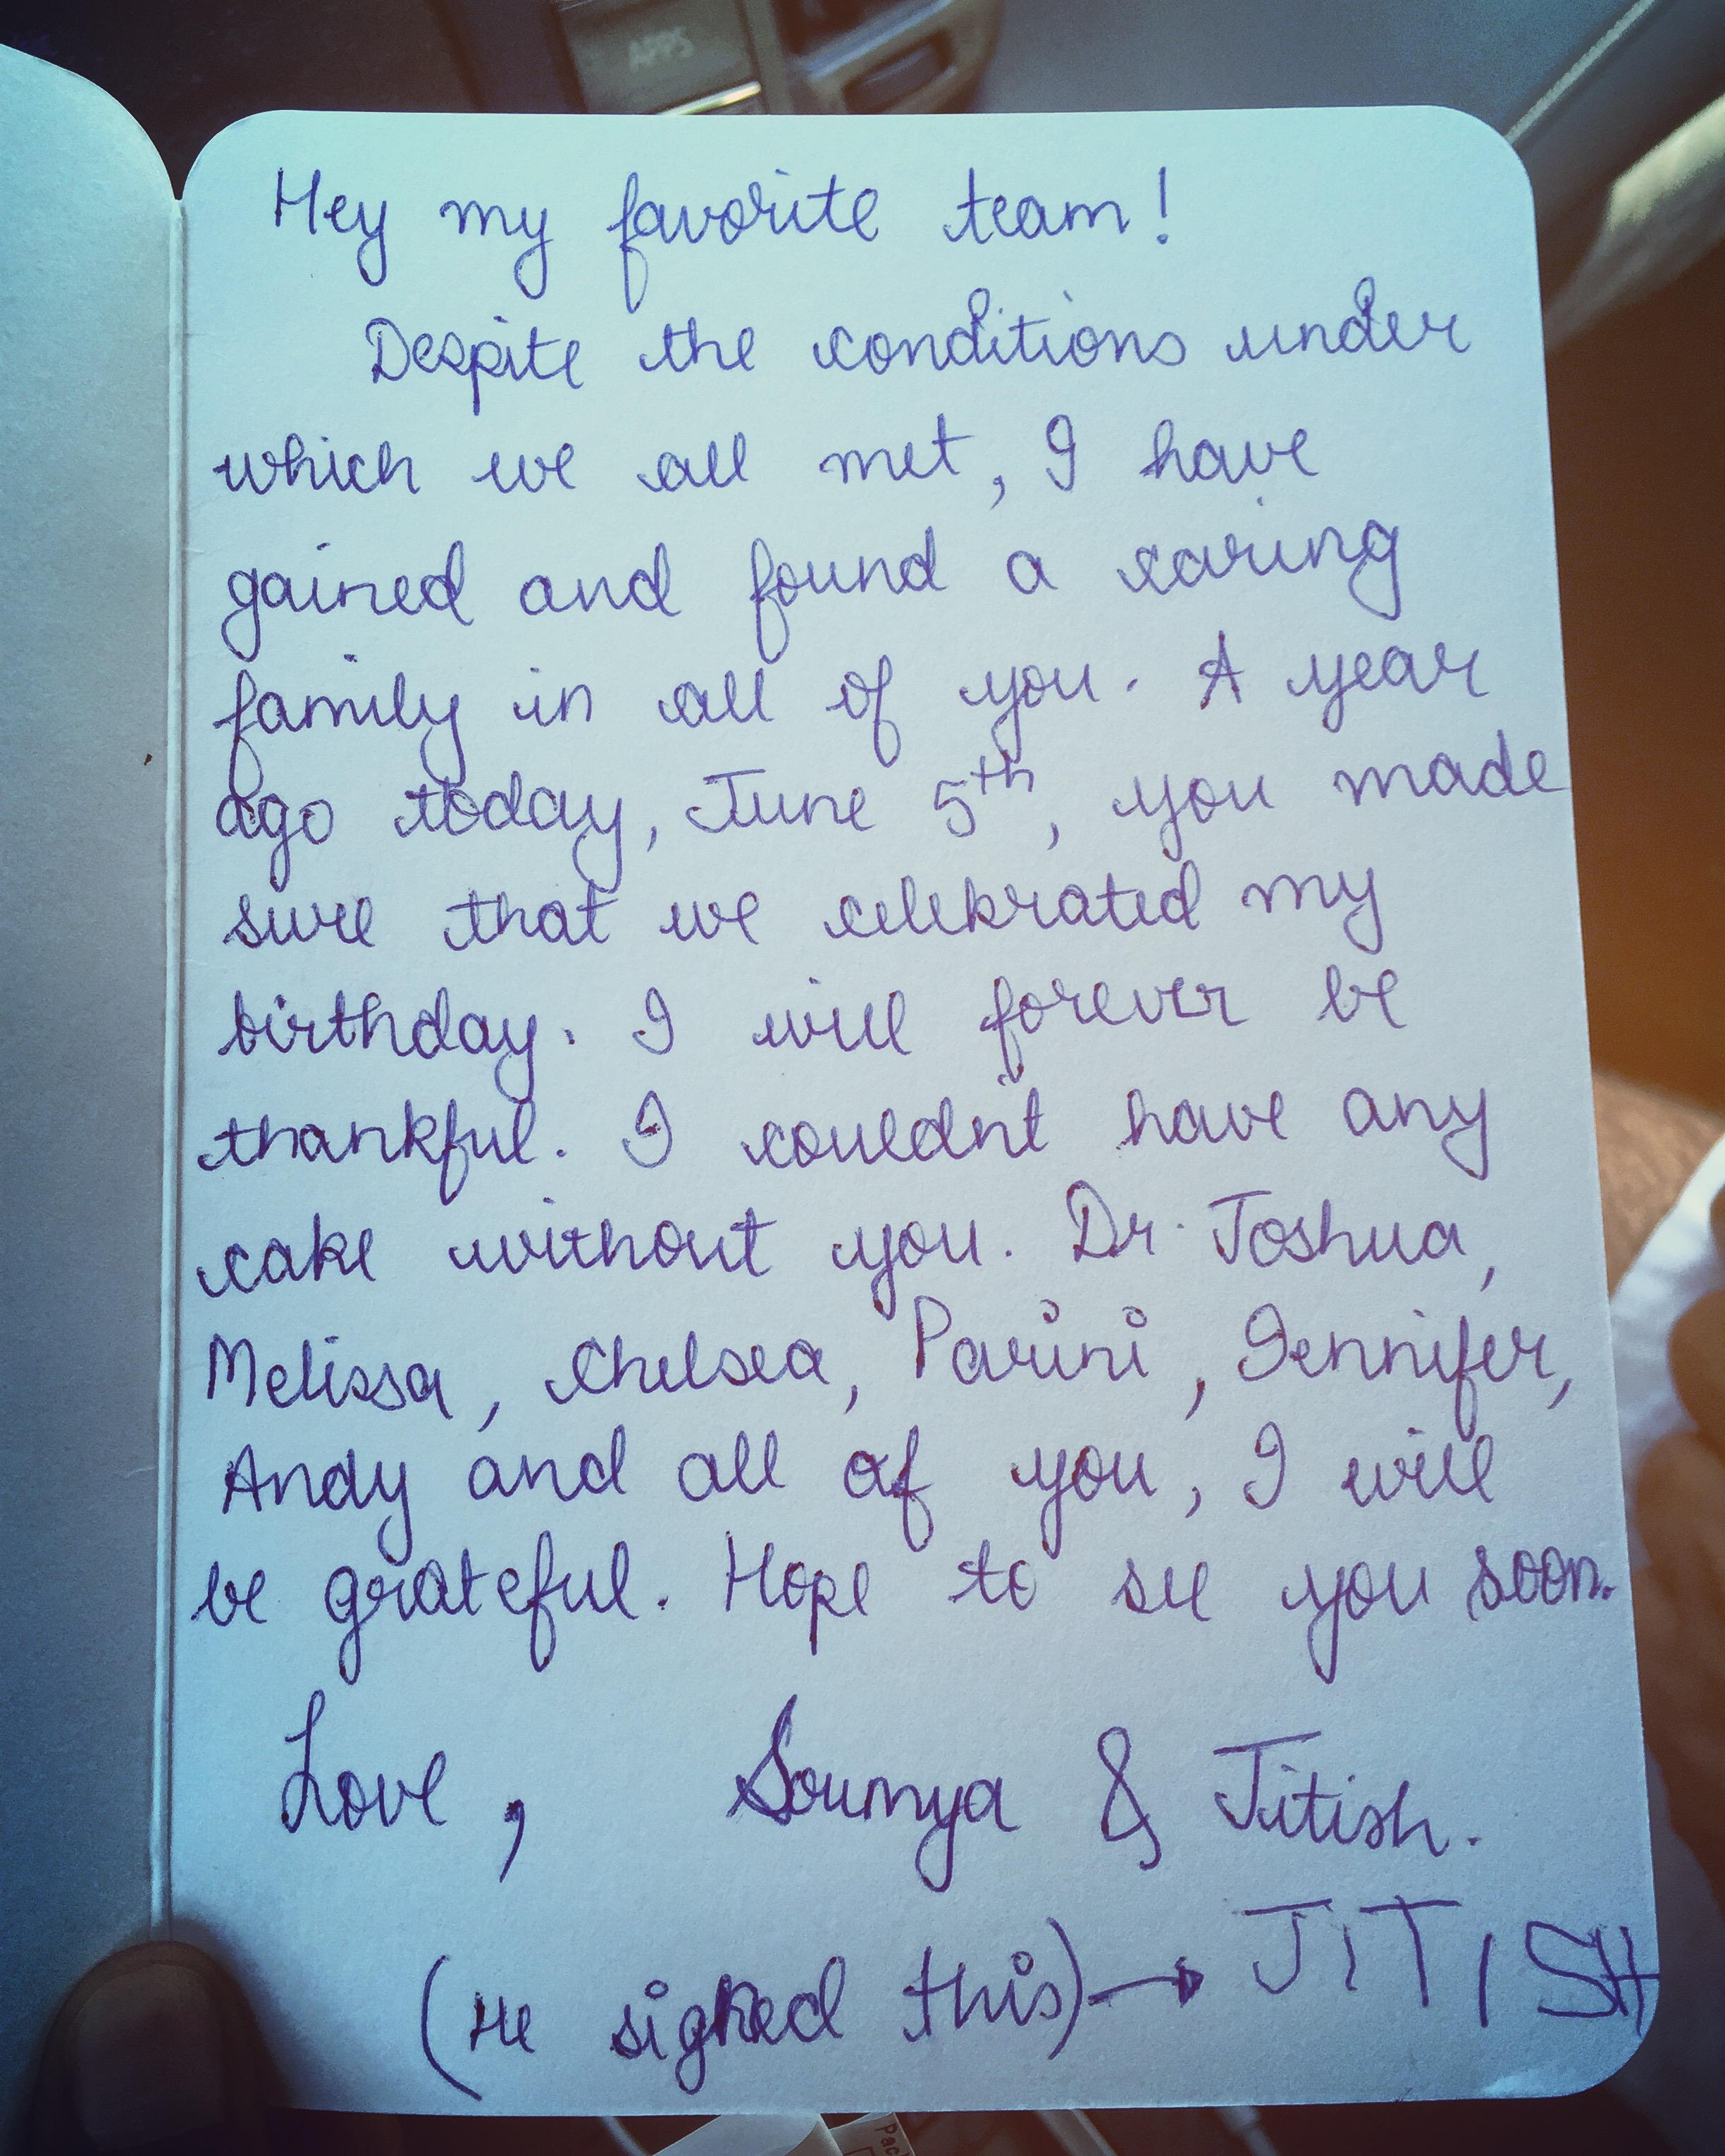 APPS
Hey my favorite team!
Despite the conditions under
which we all met, I have
gained and found a caring
family in all of you. A year
ago today, June 5th, you made
sure that we celebrated my
birthday. I will forever be
thankful. I couldn't have any
cake without you. Dr. Joshua,
Melissa, Chelsea, Parini, Jennifer,
Andy and all of you, I will
be grateful. Hope to see you soon.
Love, Soumya & Jitish.
(He signed this)→ JITISH
Pac